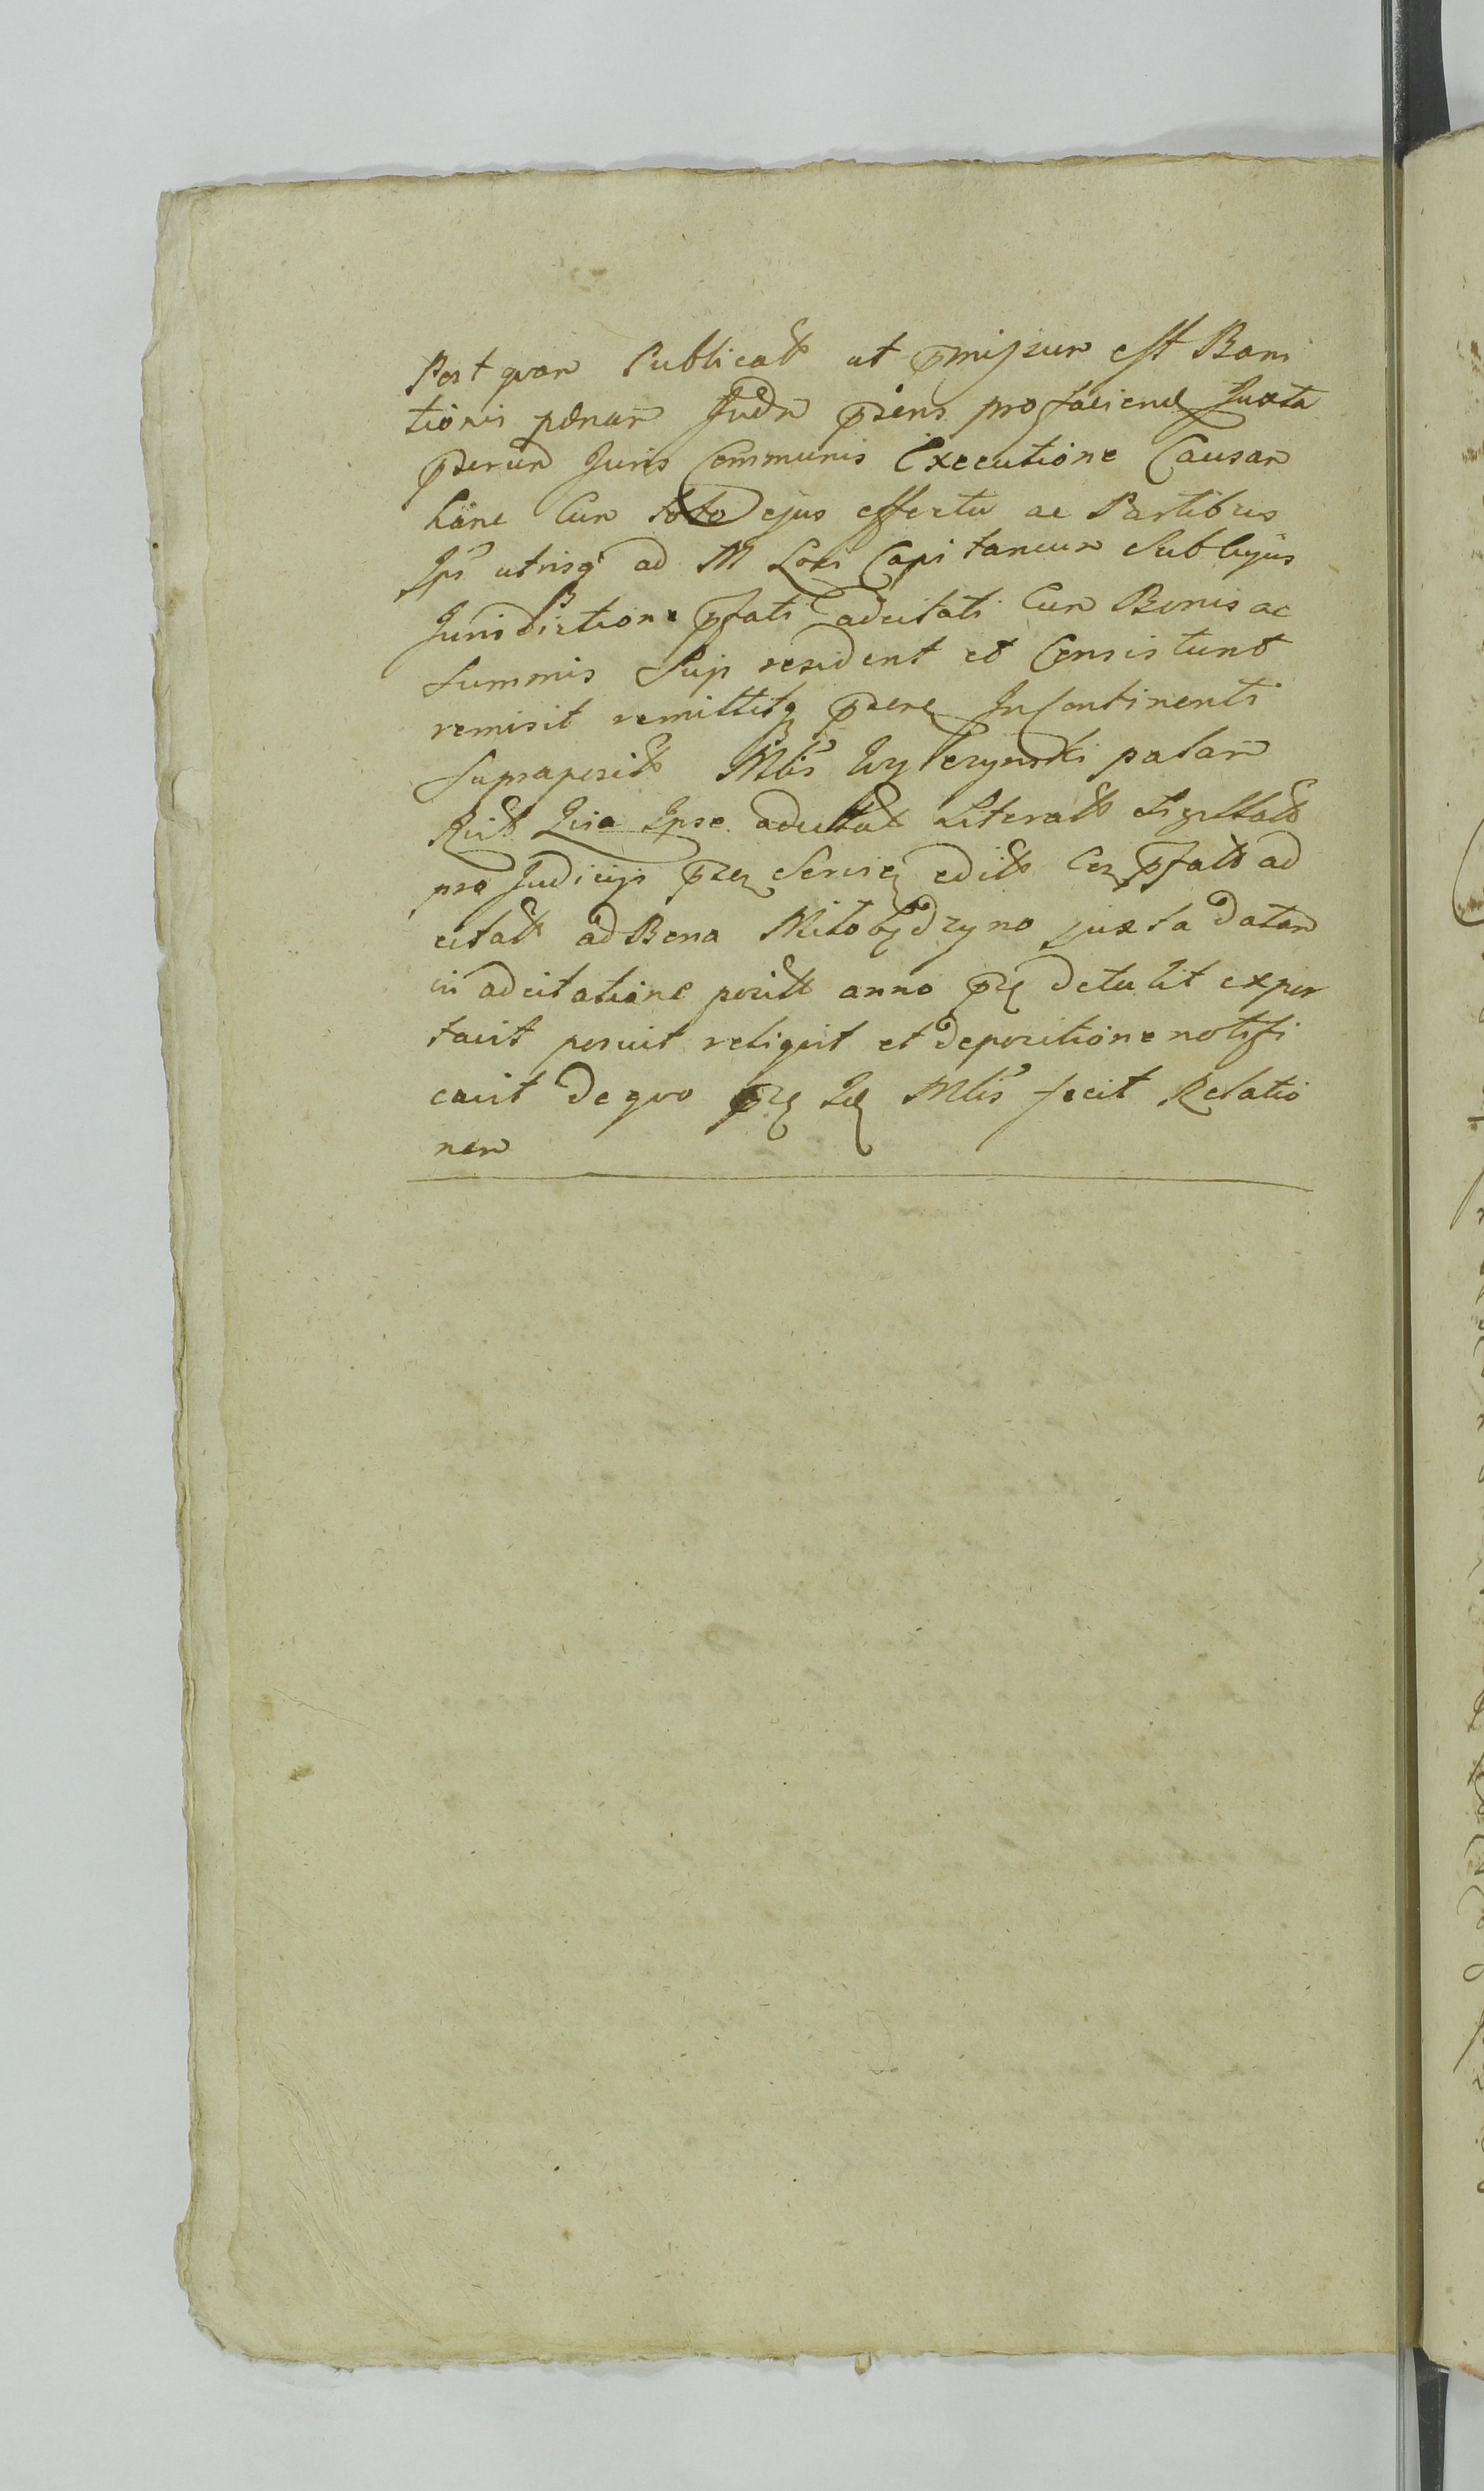 Post quam Publicatt ut pmissum est Bani
tionis pænam Judm psens pro faciend Juxta
pserum Juris Communis Executione Causam
hanc Cum toto ejus effectu ac Partibus
Ips utrisq ad M Loci Capitaneum Sub cujus
Jurisdictione pfati adcitati Cum Bonis ac
Summis Suis resident et Consistunt
remisit remittitq psene Incontinenti
Supraposit Mlis Wylezynski palam
Quia Ipse adcitat Literatt Sigillatt
pro Judicijs edit pfatt ad
citatt ad Bona Milobędzyno juxta datam
in adcitatione positt anno detulit expor
tavit posuit reliquit et depositione notifi
cavit de quo Mlis fecit Relatio
nem